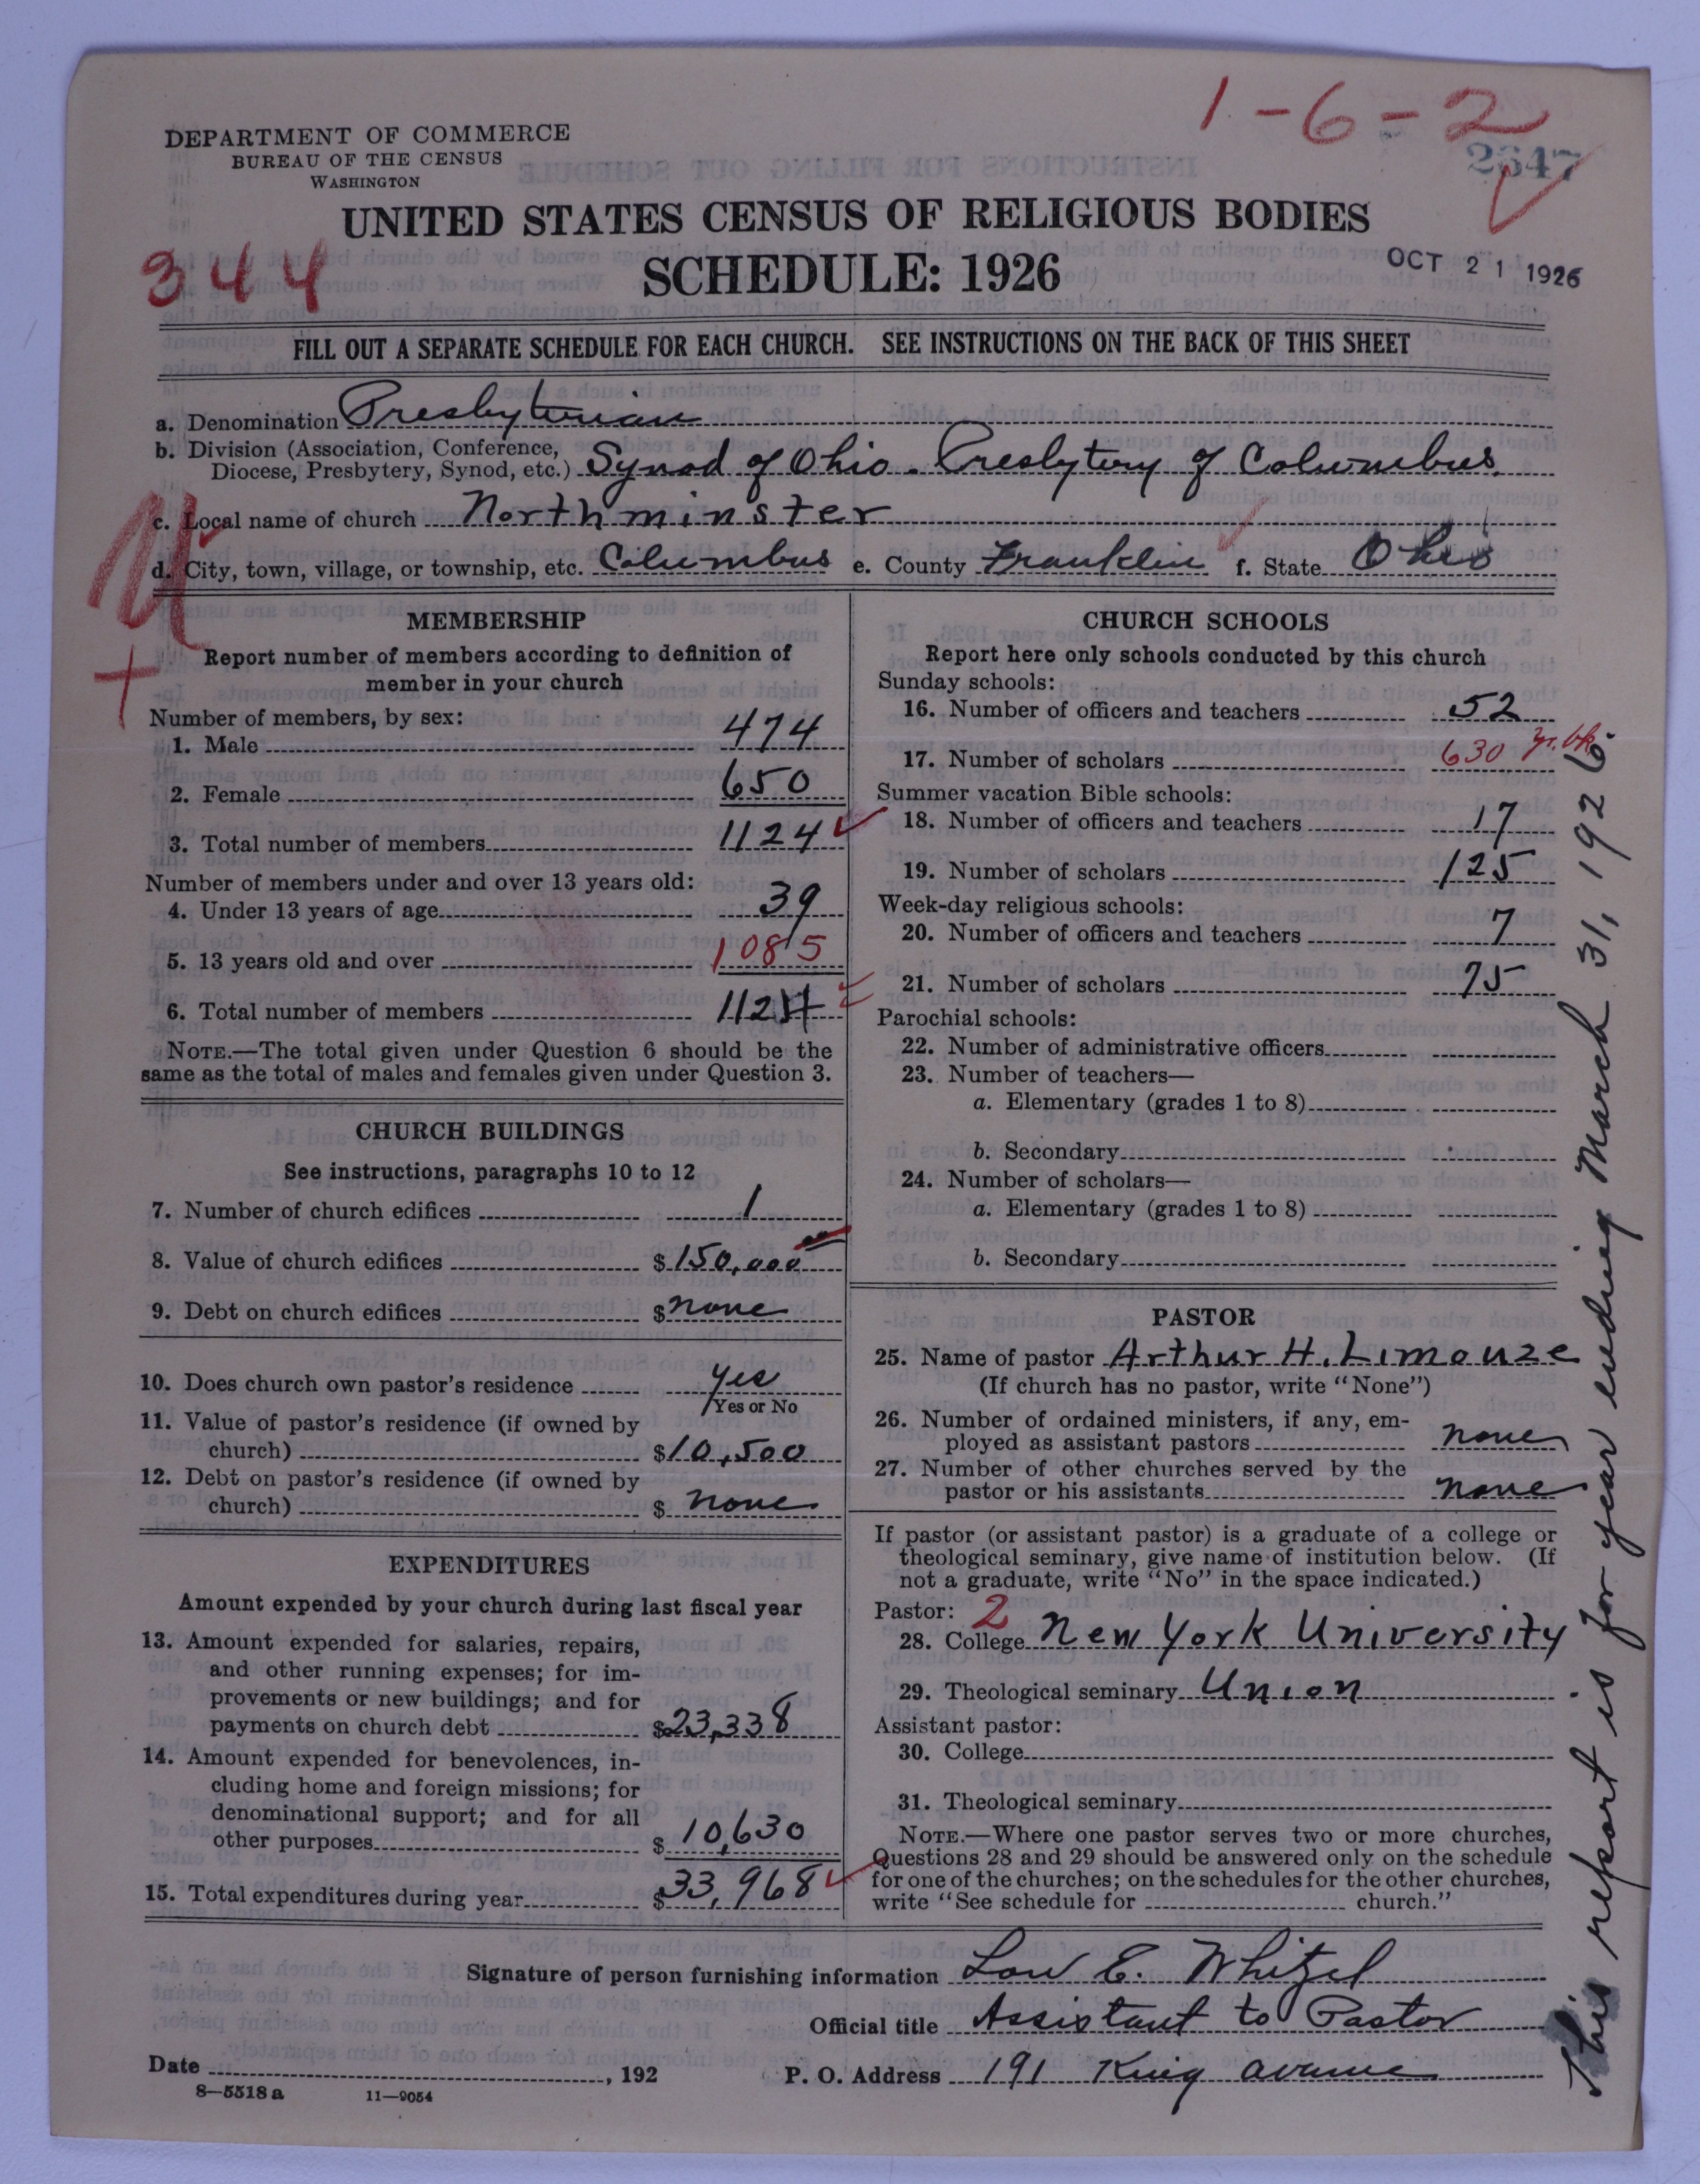 1-6-2
2647
DEPARTMENT OF COMMERCE
BUREAU OF THE CENSUS
WASHINGTON
UNITED STATES CENSUS OF RELIGIOUS BODIES
344
SCHEDULE: 1926
OCT 21 1926
FILL OUT A SEPARATE SCHEDULE FOR EACH CHURCH. SEE INSTRUCTIONS ON THE BACK OF THIS SHEET
a. Denomination Presbyterian
b. Division (Association, Conference,
Diocese, Presbytery, Synod, etc.) Synod of Ohio. Presbytery of Columbus.
c. Local name of church Northminster
d. City, town, village, or township, etc. Columbus e. County Franklin f. State Ohio
MEMBERSHIP
Report number of members according to definition of
member in your church
Number of members, by sex:
1. Male 474
2. Female 650
3. Total number of members 1124
Number of members under and over 13 years old:
4. Under 13 years of age 39
5. 13 years old and over 1085
6. Total number of members 1124
NOTE.—The total given under Question 6 should be the
same as the total of males and females given under Question 3.
CHURCH BUILDINGS
See instructions, paragraphs 10 to 12
7. Number of church edifices 1
8. Value of church edifices $150,000
9. Debt on church edifices $none
10. Does church own pastor's residence yes
Yes or No
11. Value of pastor's residence (if owned by
church) $10,500
12. Debt on pastor's residence (if owned by
church) $ none
EXPENDITURES
Amount expended by your church during last fiscal year
13. Amount expended for salaries, repairs,
and other running expenses; for im-
provements or new buildings; and for
payments on church debt $23,338
14. Amount expended for benevolences, in-
cluding home and foreign missions; for
denominational support; and for all
other purposes $ 10,630
15. Total expenditures during year $33,968
CHURCH SCHOOLS
Report here only schools conducted by this church
Sunday schools:
16. Number of officers and teachers 52
17. Number of scholars 630 yr. bk.
Summer vacation Bible schools:
18. Number of officers and teachers 17
19. Number of scholars 125
Week-day religious schools:
20. Number of officers and teachers 7
21. Number of scholars 75
Parochial schools:
22. Number of administrative officers
23. Number of teachers—
a. Elementary (grades 1 to 8)
b. Secondary
24. Number of scholars—
a. Elementary (grades 1 to 8)
b. Secondary
PASTOR
25. Name of pastor Arthur H. Limouze
(If church has no pastor, write "None")
26. Number of ordained ministers, if any, em-
ployed as assistant pastors none
27. Number of other churches served by the
pastor or his assistants none
If pastor (or assistant pastor) is a graduate of a college or
theological seminary, give name of institution below. (If
not a graduate, write "No" in the space indicated.)
Pastor: 2
28. College New York University
29. Theological seminary Union
Assistant pastor:
30. College
31. Theological seminary
NOTE.—Where one pastor serves two or more churches,
Questions 28 and 29 should be answered only on the schedule
for one of the churches; on the schedules for the other churches,
write "See schedule for church."
Signature of person furnishing information Low E. Whitzel
Official title Assistant to Pastor
Date , 192 P. O. Address 191 King avenue
8-5518a 11-9054
This report is for year ending March 31, 1926.